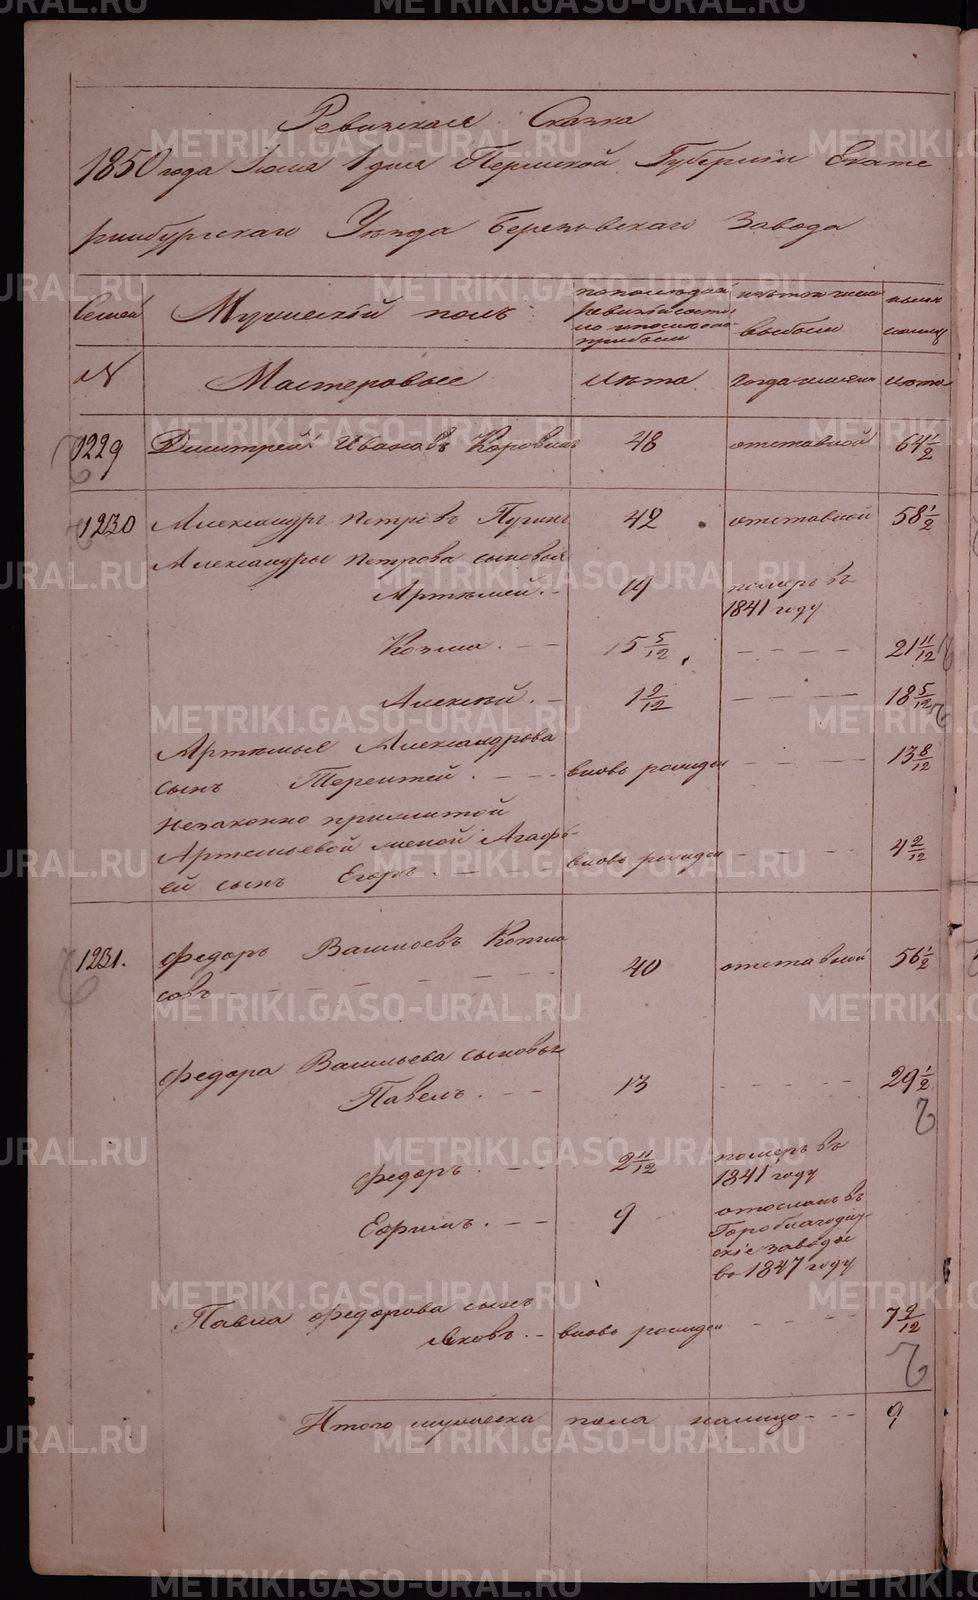 Ревизская Сказка
1850 года Iюня 1 дня Пермской Губернiи Екате
ринбургскаго Уѣзда Березовскаго Завода
Семей
Мужескiй полъ
по последней
ревизiи состо
яло и после она
прибыли
изъ того числа
выбыли
ныне
на лицо
№
Мастеровые
лѣта
когда именно
лѣта
1229 Дмитрей Ивановъ Коровинъ 48 отставной 64 1/2
1230 Александръ Петровъ Пугинъ 42 отставной 58 1/2
Александры Петрова сыновья
Артемей. 19 померъ въ
1841 году
Козма. - - 15 5/12 - - - - 21 11/12
Алексей. - 1 9/12 - - - - 18 5/12
Артемья Александрова
сынъ Терентей. - - - вновь рожден - - - - 13 8/12
Незаконно прижитой
Артемьевой женой Агафь-
ей сынъ Егоръ. - - - вновь рожден - - - - 4 2/12
1231. Федоръ Васильевъ Козми
совъ - - - - - - - 40 отставной 56 1/2
Федора Васильева сыновья
Павелъ. - - 13 - - - - 29 1/2
Федоръ. - - 2 11/12 померъ въ
1841 году
Ефимъ. - - 9 отосланъ въ
Гороблагодат-
скiе заводы
въ 1847 году
Павла Федорова сынъ
Яковъ. - - вновь рожден - - - - 7 9/12
Итого мужеска пола налицо - - - 9
METRIKI.GASO-URAL.RU